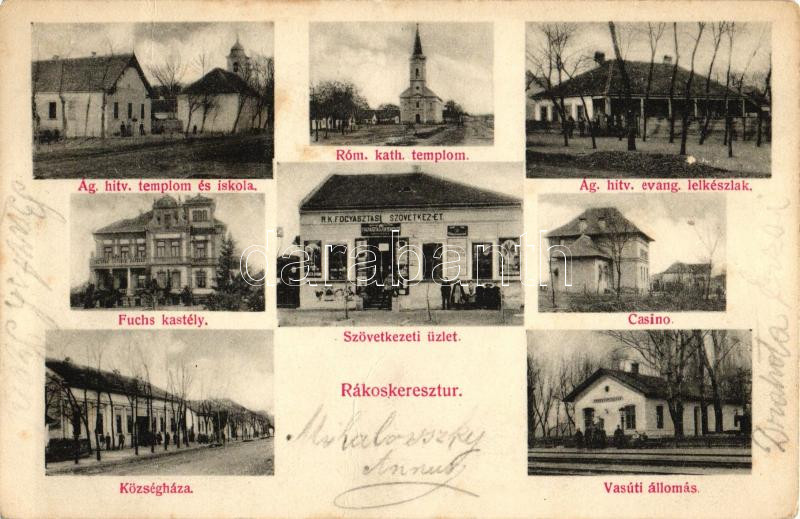 Ág. hitv. templom és iskola.
Róm. kath. templom.
Ág. hitv. evang. lelkészlak.
R.K. FOGYASZTÁSI SZÖVETKEZET.
Fuchs kastély.
Szövetkezeti üzlet.
Casino.
carabanth
Rákoskeresztur.
Mihalovszky
Annus
Községháza.
Vasúti állomás.